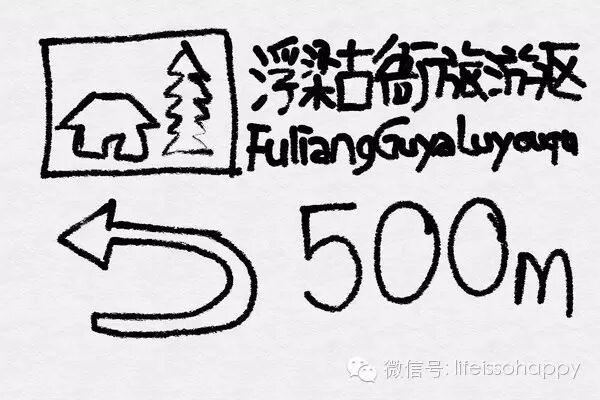 浮梁古衙旅游区
FuliangGuyaLuyouqu
500m
微信号: lifeissohappy